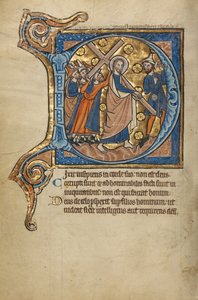 D
ixit insipiens in corde suo: non est deus
Corrupti sunt & abhominabiles facti sunt in
iniquitatib: non est qui faciat bonum
Deus de celo prospexit sup filios hominum: ut
videat si est intelligens aut requirens deum